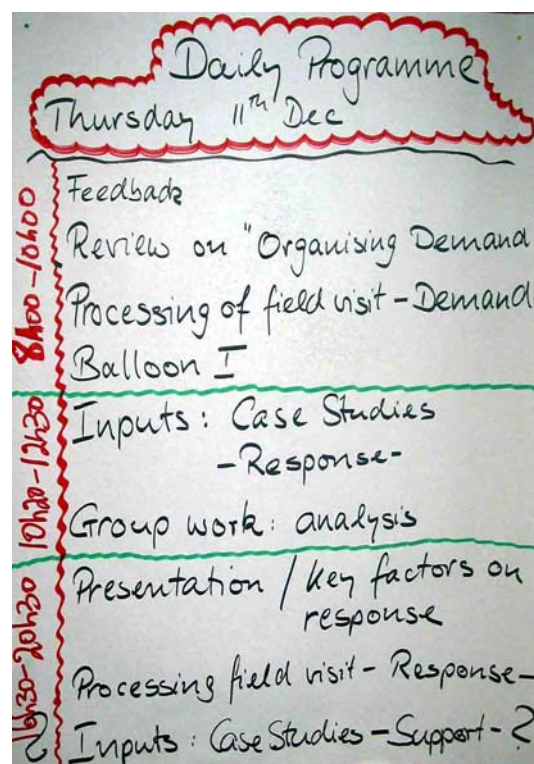 Daily Programme
Thursday 11th Dec
8h00-10h00
Feedback
Review on "Organising Demand
Processing of field visit - Demand-
Balloon I
10h20-12h30
Inputs: Case Studies
-Response-
Group work: analysis
16h30-20h30
Presentation / key factors on
response
Processing field visit - Response-
Inputs: Case Studies - Support - ?